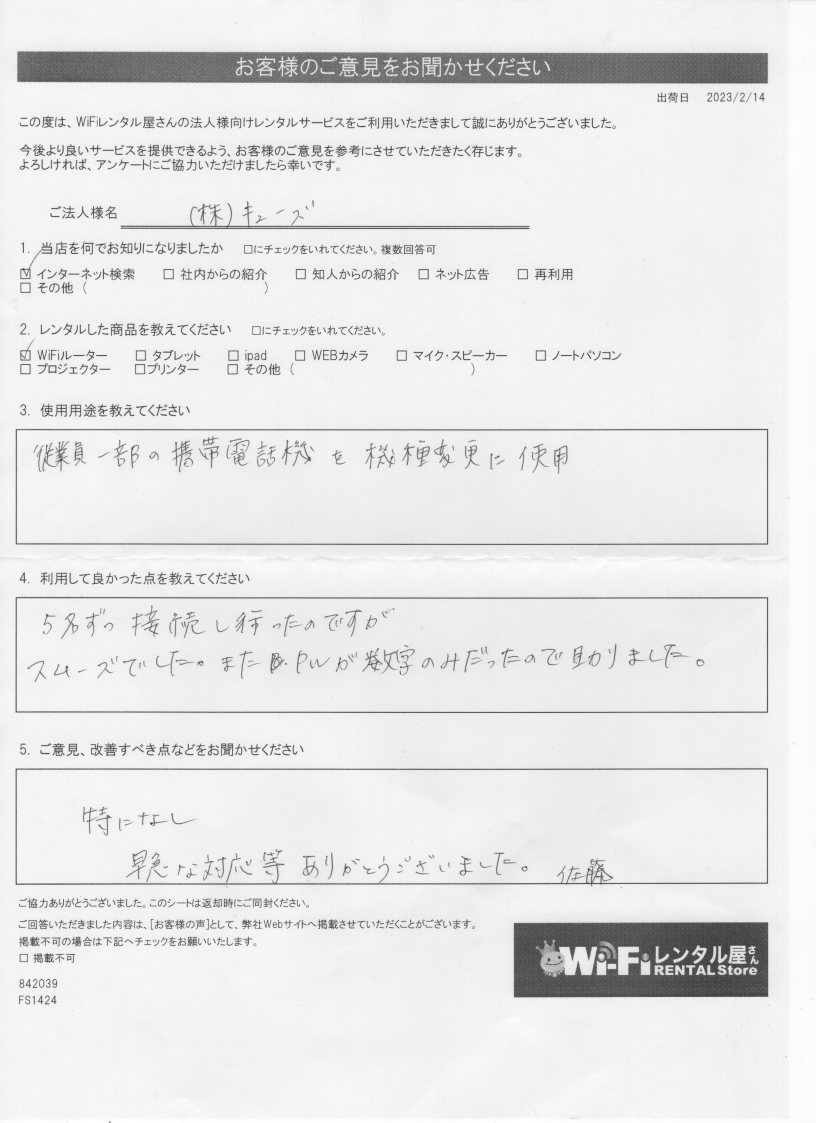 お客様のご意見をお聞かせください
出荷日 2023/2/14
この度は、WiFiレンタル屋さんの法人様向けレンタルサービスをご利用いただきまして誠にありがとうございました。
今後より良いサービスを提供できるよう、お客様のご意見を参考にさせていただきたく存じます。
よろしければ、アンケートにご協力いただけましたら幸いです。
ご法人様名 (株)キューズ
1. 当店を何でお知りになりましたか □にチェックをいれてください。複数回答可
☑ インターネット検索 □ 社内からの紹介 □ 知人からの紹介 □ ネット広告 □ 再利用
□ その他 ( )
2. レンタルした商品を教えてください □にチェックをいれてください。
☑ WiFiルーター □ タブレット □ ipad □ WEBカメラ □ マイク・スピーカー □ ノートパソコン
□ プロジェクター □プリンター □ その他 ( )
3. 使用用途を教えてください
従業員一部の携帯電話機を機種変更に使用
4. 利用して良かった点を教えてください
5名ずつ接続し行ったのですが
スムーズでした。また PWが数字のみだったので助かりました。
5. ご意見、改善すべき点などをお聞かせください
特になし
早急な対応等ありがとうございました。 佐藤
ご協力ありがとうございました。このシートは返却時にご同封ください。
ご回答いただきました内容は、[お客様の声]として、弊社Webサイトへ掲載させていただくことがございます。
掲載不可の場合は下記へチェックをお願いいたします。
□ 掲載不可
Wi-Fiレンタル屋さん
RENTAL Store
842039
FS1424